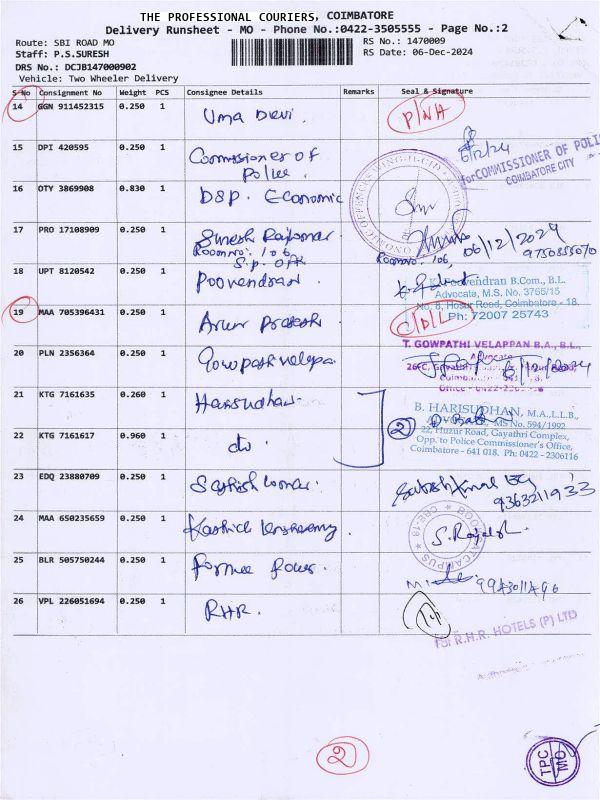 THE PROFESSIONAL COURIERS, COIMBATORE
Delivery Runsheet - MO - Phone No.:0422-3505555 - Page No.:2
Route: SBI ROAD MO
RS No.: 1470009
Staff: P.S.SURESH
RS Date: 06-Dec-2024
DRS No.: DCJB147000902
Vehicle: Two Wheeler Delivery
S No Consignment No Weight PCS Consignee Details Remarks Seal & Signature
14 GGN 911452315 0.250 1 Uma Devi. P/NA
15 DPI 420595 0.250 1 Commissioner of Police.
6/12/24
For COMMISSIONER OF POLI
COIMBATORE CITY
16 OTY 3869908 0.830 1 DSP. Economic
17 PRO 17108909 0.250 1 Suresh Rajkumar
Room no: 106
06/12/2024
Room no: 106, 9750855070
18 UPT 8120542 0.250 1 Poovendran
oovendran B.Com., B.L.
Advocate, M.S. No. 3765/15
No. 8, Hosur Road, Coimbatore - 18.
Ph: 72007 25743
19 MAA 705396431 0.250 1 Arun Prakash C/D/L
20 PLN 2356364 0.250 1 Gowpathi velapa
T. GOWPATHI VELAPPAN B.A., B.L.,
Advocate
6/12/2024
21 KTG 7161635 0.260 1 Harisudhan.
22 KTG 7161617 0.960 1 do. 2
B. HARISUDHAN, M.A.,L.L.B.,
MS No. 594/1992
22, Huzur Road, Gayathri Complex,
Opp. to Police Commissioner's Office,
Coimbatore - 641 018. Ph: 0422 - 2306116
23 EDQ 23880709 0.250 1 Sathish kumar.
9363211933
24 MAA 650235659 0.250 1
S. Rajesh.
25 BLR 505750244 0.250 1
26 VPL 226051694 0.250 1 RHR.
For R.H.R. HOTELS (P) LTD
2
TPC
MO